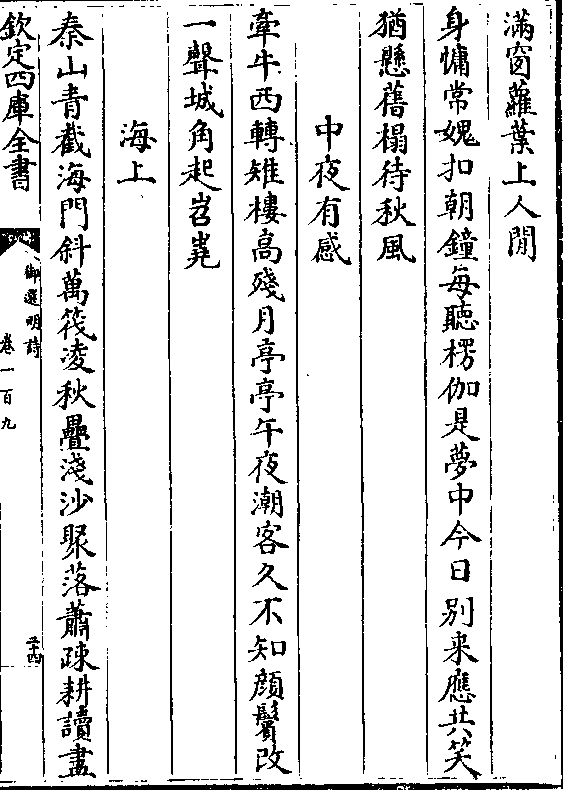 滿窗蘿葉上人閒
身慵常媿扣朝鐘每聽楞伽是夢中今日別来應共笑
猶懸舊榻待秋風
中夜有感
牽牛西轉雉樓高殘月亭亭午夜潮客久不知顔鬢改
一聲城角起岧嶤
海上
秦山青截海門斜萬筏淩秋疊淺沙聚落蕭疎耕讀盡
欽定四庫全書
御選明詩
卷一百九
三十四